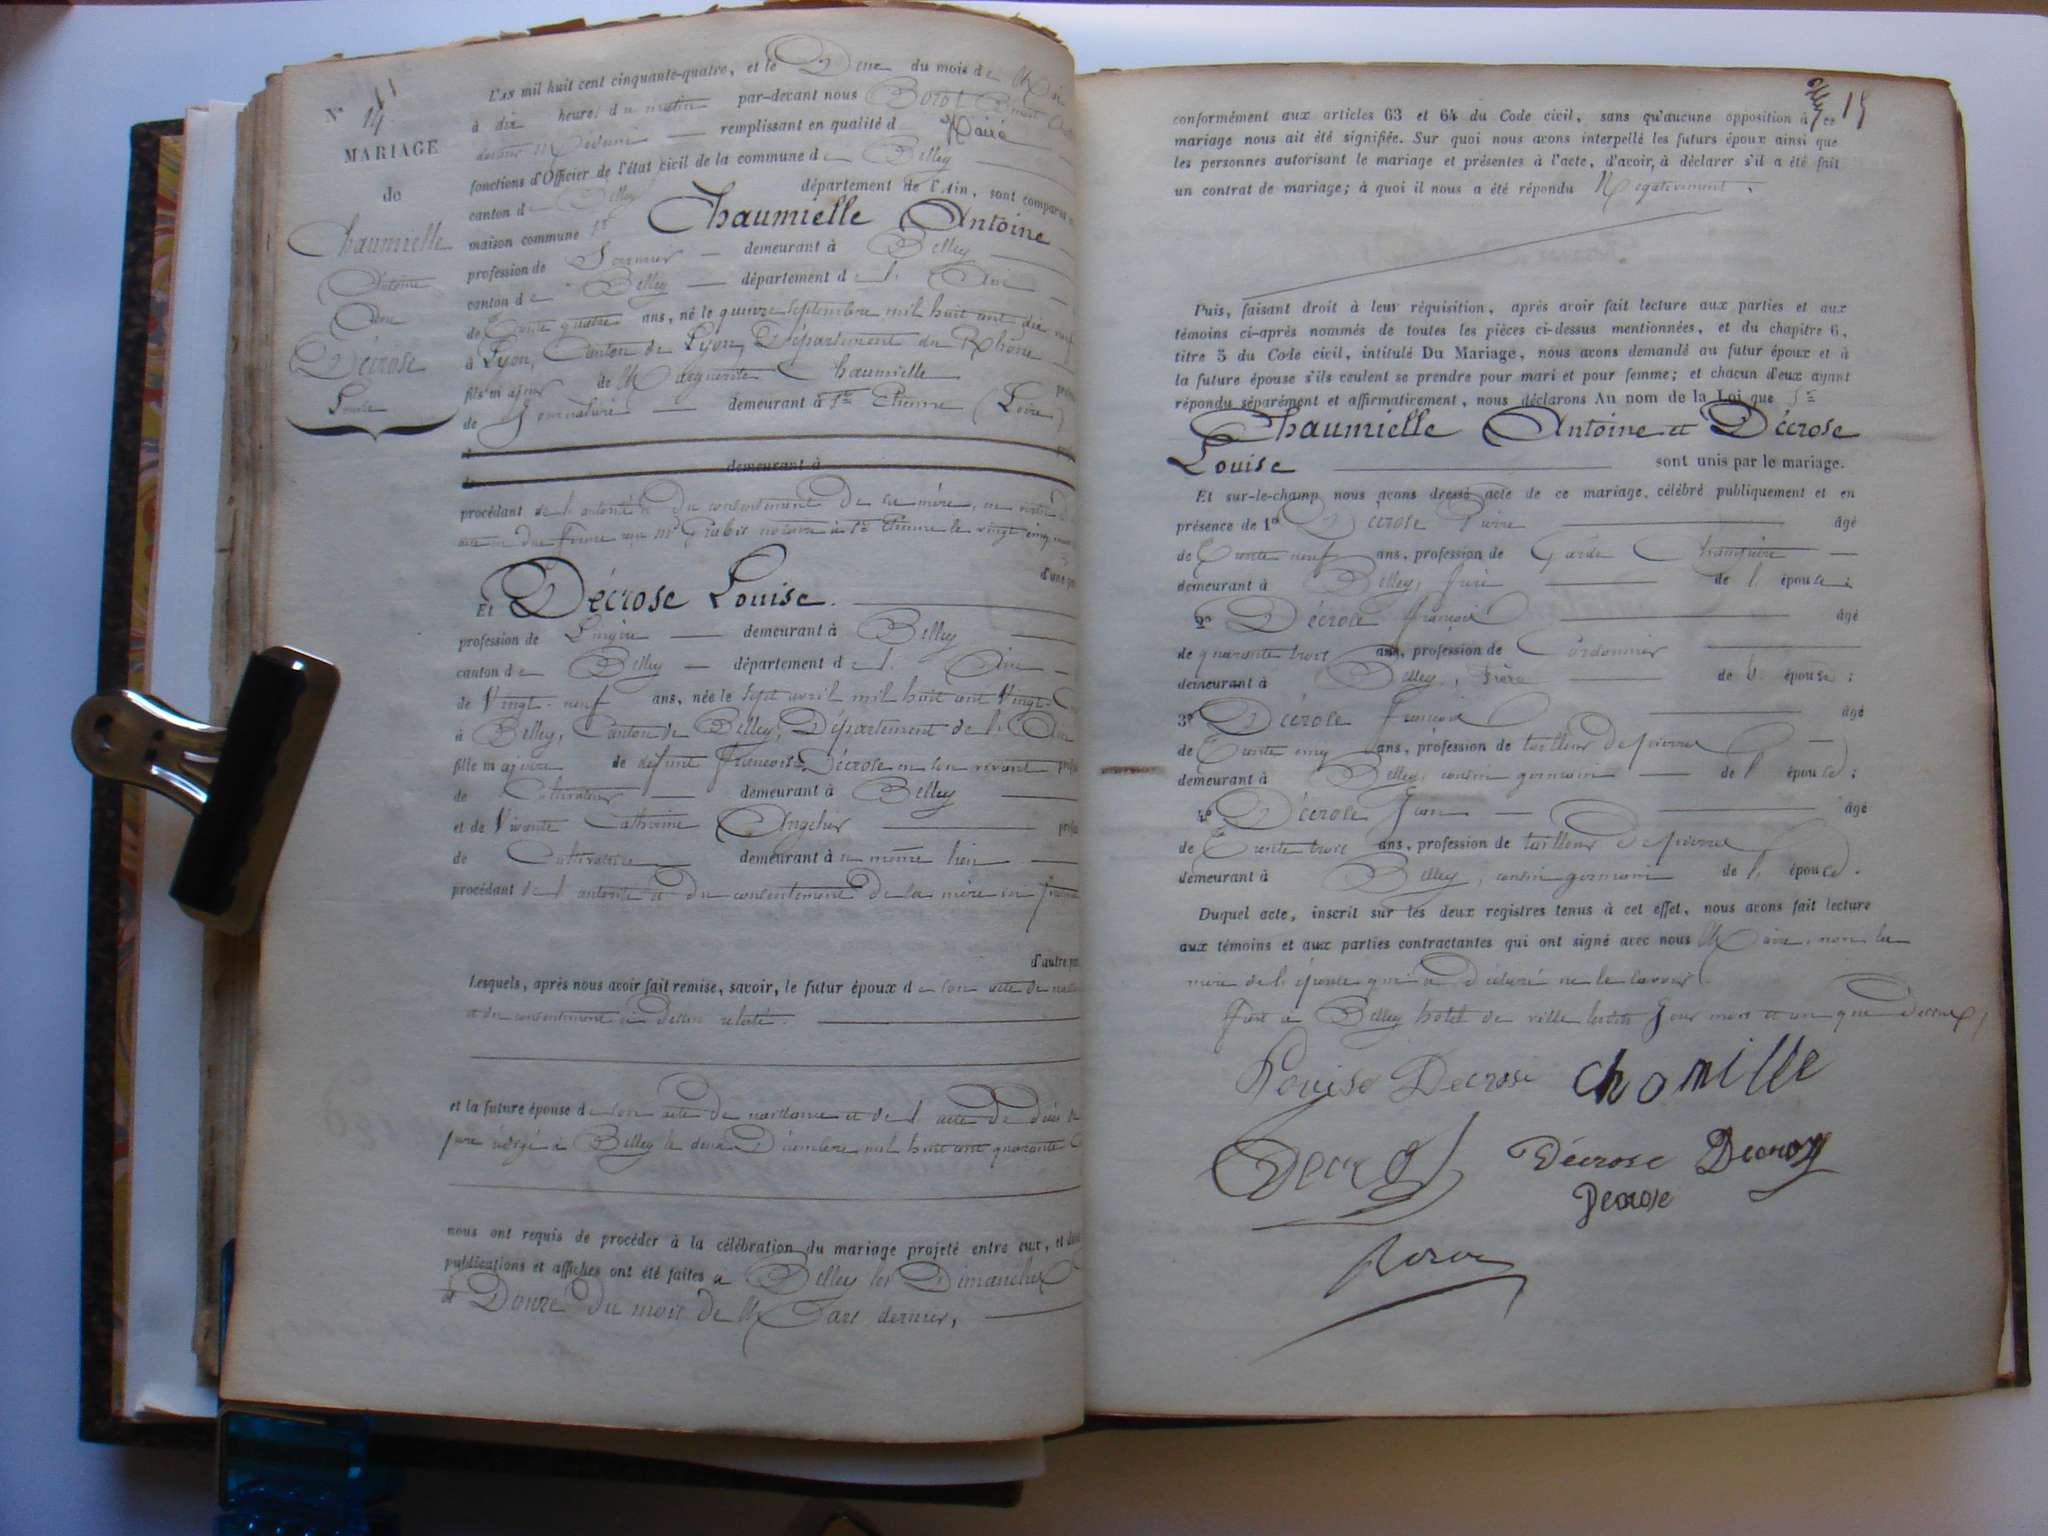 N° 14
MARIAGE
de
Chaumielle
Antoine
Avec
Décrose
Louise
L'AN mil huit cent cinquante-quatre, et le Deux du mois de
à dix heures du matin par-devant nous Borot Benoit
docteur Médecin remplissant en qualité de Maire
fonctions d'Officier de l'état civil de la commune de Belley
canton de Belley département de l'Ain, sont comparus
maison commune Sr Chaumielle Antoine
profession de demeurant à Belley
canton de Belley département de l'Ain
de Trente quatre ans, né le quinze septembre mil huit cent dix neuf
à Lyon, Canton de Lyon, Département du Rhône
fils majeur de Marguerite Chaumielle
de Journalière demeurant à St Etienne (Loire)
demeurant à
procédant de l'autorité et du consentement de sa mère, en vertu
notaire à St Etienne le vingt cinq
d'une part
Et Décrose Louise.
profession de Lingère demeurant à Belley
canton de Belley département de l'Ain
de Vingt-neuf ans, née le sept avril mil huit cent vingt
à Belley, Canton de Belley, Département de l'Ain
fille majeure de défunt François Décrose en son vivant
de Cultivateur demeurant à Belley
et de Vivante Catherine Angelier
de Cultivatrice demeurant à même lieu
procédant de l'autorité et du consentement de sa mère ici présente
d'autre part
Lesquels, après nous avoir fait remise, savoir, le futur époux de son acte de
et du consentement ci dessus relaté.
et la future épouse de son acte de naissance et de l'acte de décès de
père rédigé à Belley le deux Décembre mil huit cent quarante
nous ont requis de procéder à la célébration du mariage projeté entre eux, et dont
publications et affiches ont été faites à Belley les Dimanches
et Douze du mois de Mars dernier,
15
conformément aux articles 63 et 64 du Code civil, sans qu'aucune opposition à ce
mariage nous ait été signifiée. Sur quoi nous avons interpellé les futurs époux ainsi que
les personnes autorisant le mariage et présentes à l'acte, d'avoir, à déclarer s'il a été fait
un contrat de mariage; à quoi il nous a été répondu Négativement.
Puis, faisant droit à leur réquisition, après avoir fait lecture aux parties et aux
témoins ci-après nommés de toutes les pièces ci-dessus mentionnées, et du chapitre 6,
titre 5 du Code civil, intitulé Du Mariage, nous avons demandé au futur époux et à
la future épouse s'ils veulent se prendre pour mari et pour femme; et chacun d'eux ayant
répondu séparément et affirmativement, nous déclarons Au nom de la Loi que Sr
Chaumielle Antoine et Décrose
Louise sont unis par le mariage.
Et sur-le-champ nous avons dressé acte de ce mariage, célébré publiquement et en
présence de 1° Décrose Pierre âgé
de Trente neuf ans, profession de Garde Champêtre
demeurant à Belley, frère de l'épouse;
2° Décrose François âgé
de quarante trois ans, profession de Cordonnier
demeurant à Belley, frère de l'épouse;
3° Décrose François âgé
de Trente cinq ans, profession de tailleur de pierres
demeurant à Belley, cousin germain de l'épouse;
4° Décrose Jean âgé
de Trente trois ans, profession de tailleur de pierres
demeurant à Belley, cousin germain de l'épouse.
Duquel acte, inscrit sur les deux registres tenus à cet effet, nous avons fait lecture
aux témoins et aux parties contractantes qui ont signé avec nous Maire, non la
mère de l'épouse qui a déclaré ne le savoir.
Fait à Belley hotel de ville lesdits Jour mois et an que dessus,
Louise Decrose Chomille
Decros Décrose Decroze
Decrose
Borot